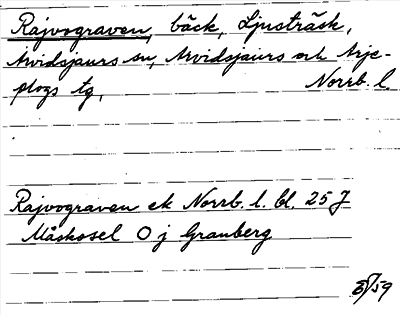 Rajvograven, bäck, Ljusträsk,
Arvidsjaurs sn, Arvidsjaurs och Arje-
plogs tg, Norrb. l.
Rajvograven ek Norrb. l. bl. 25 J
Måskosel O j Granberg
/59